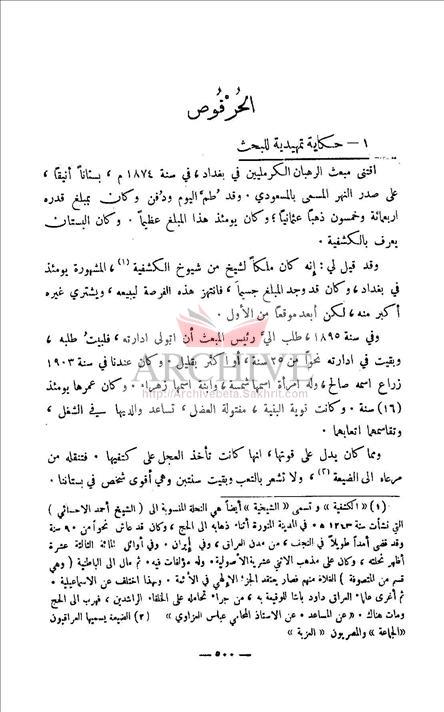 الحُرْقُوص
١ - حكاية تمهيدية للبحث
اقتنى مبعث الرهبان الكرمليين في بغداد، في سنة ١٨٧٤ م، بستاناً أنيقاً،
على صدر النهر المسمى بالمسعودي. وقد طُمَّ اليوم ودُفن وكان بمبلغ قدره
اربعمائة وخمسون ذهباً عثمانياً؛ وكان يومئذ هذا المبلغ عظيماً. وكان البستان
يعرف بالكشفية.
وقد قيل لي: إنه كان ملكاً لشيخ من شيوخ الكشفية (١)، المشهورة يومئذ
في بغداد، وكان قد وجد المبلغ جسيماً، فانتهز هذه الفرصة ليبيعه، ويشتري غيره
أكبر منه، لكن أبعد موقعاً من الأول.
وفي سنة ١٨٩٥، طلب اليّ رئيس المبعث أن اتولى ادارته، فلبيتُ طلبه،
وبقيت في ادارته نحواً من ٢٥ سنة، أو اكثر بقليل. وكان عندنا في سنة ١٩٠٣
زراع اسمه صالح، وله امرأة اسمها شمسة، وابنة اسمها زهراء. وكان عمرها يومئذ
(١٦) سنة. وكانت قوية البنية، مفتولة العضل، تساعد والديها في الشغل،
وتقاسمهما اتعابهما.
ومما كان يدل على قوتها، انها كانت تأخذ العجل على كتفيها. فتنقله من
مرعاه الى الضيعة (٢)، ولا تشعر بالتعب وبقيت سنتين وهي أقوى شخص في بستاننا.
(١) «الكشفية» وتسمى «الشيخية» أيضاً هي النحلة المنسوبة الى (الشيخ أحمد الاحسائي)
التي نشأت سنة ١٢٤٣ ه. في المدينة المنورة أثناء ذهابه الى الحج، وكان قد عاش نحواً من ٩٠ سنة
وقد قضى أمداً طويلاً في النجف، من مدن العراق، وفي إيران. وفي أوائل المائة الثالثة عشرة
أظهر نحلته، وكان على مذهب الاثني عشرية الأصولية. وله مؤلفات فيه. ثم مال الى الباطنية (وهي
قسم من المتصوفة) الغلاة منهم فصار يعتقد الجزء الإلهي في الأئمة. وبهذا اختلف عن الاسماعيلية.
ثم أغرى علماء العراق داود باشا للوقيعة به، من جراء تحامله على الخلفاء الراشدين، فهرب الى الحج
ومات هناك. «عن المساعد عن الاستاذ المحامي عباس العزاوي» (٢) الضيعة يسميها العراقيون
«الجماعة» والمصريون «العزبة»
— ٥٠٠ —
ARCHIVE
http://Archivebeta.Sakhrit.com